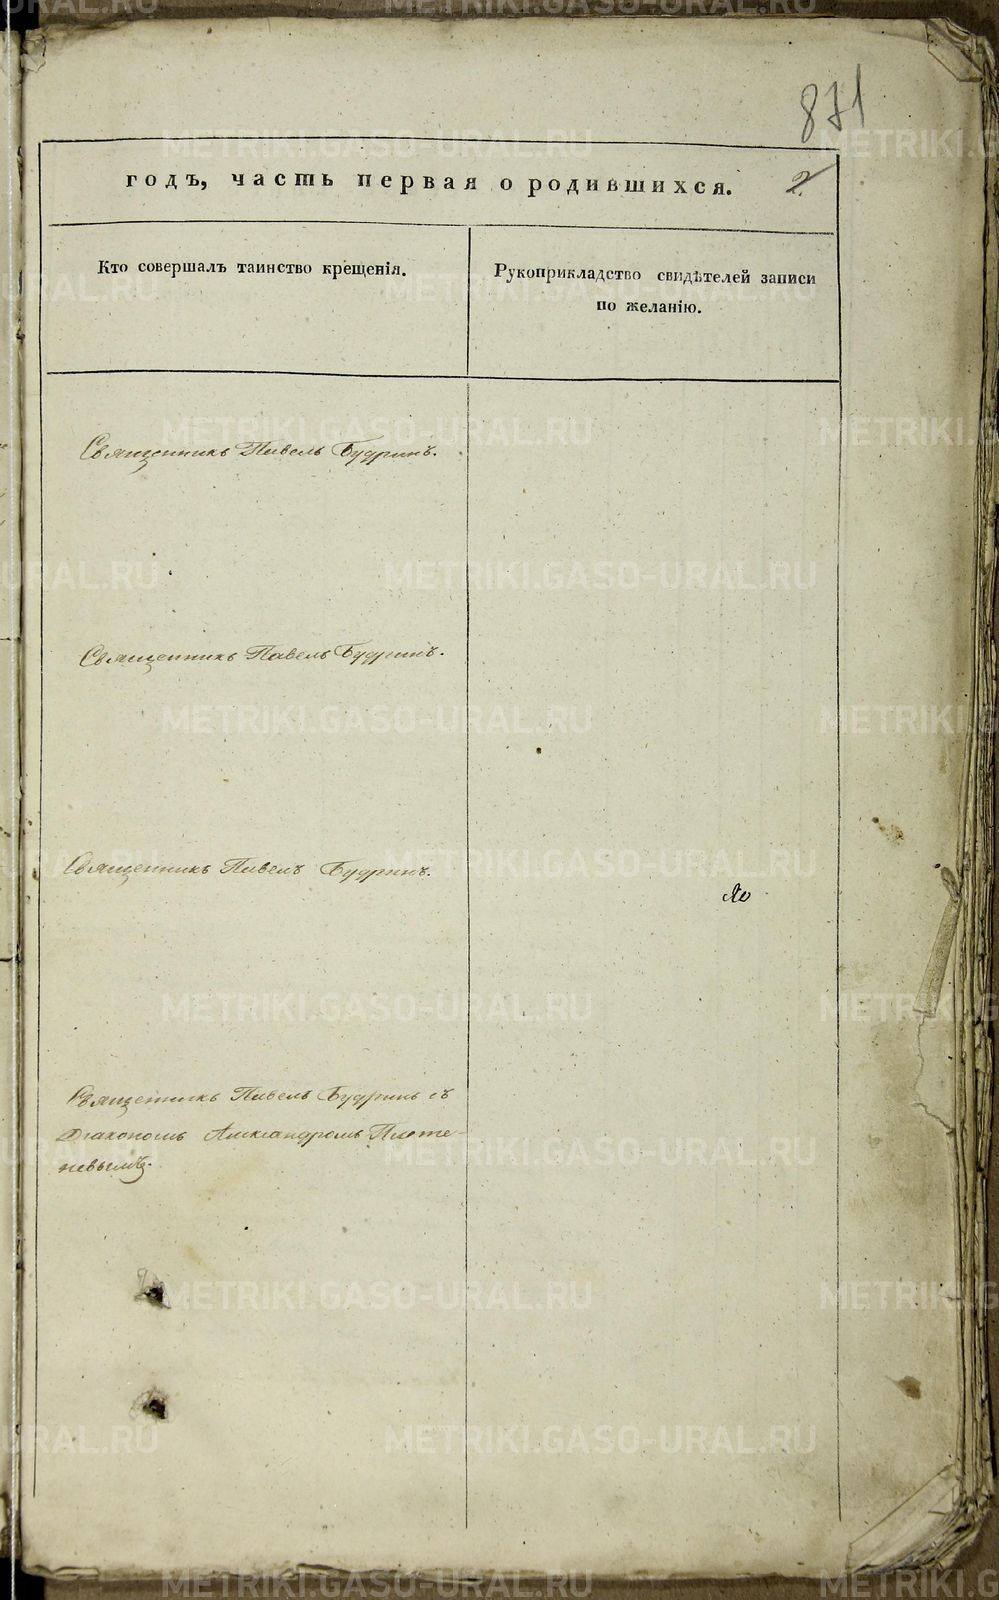 871
годъ, часть первая о родившихся. 2.
Кто совершалъ таинство крещенія.
Рукоприкладство свидѣтелей записи
по желанію.
Священникъ Павелъ Будринъ.
Священникъ Павелъ Будринъ.
Священникъ Павелъ Будринъ.
Священникъ Павелъ Будринъ съ
Діакономъ Александромъ Плоте-
невымъ.
METRIKI.GASO-URAL.RU